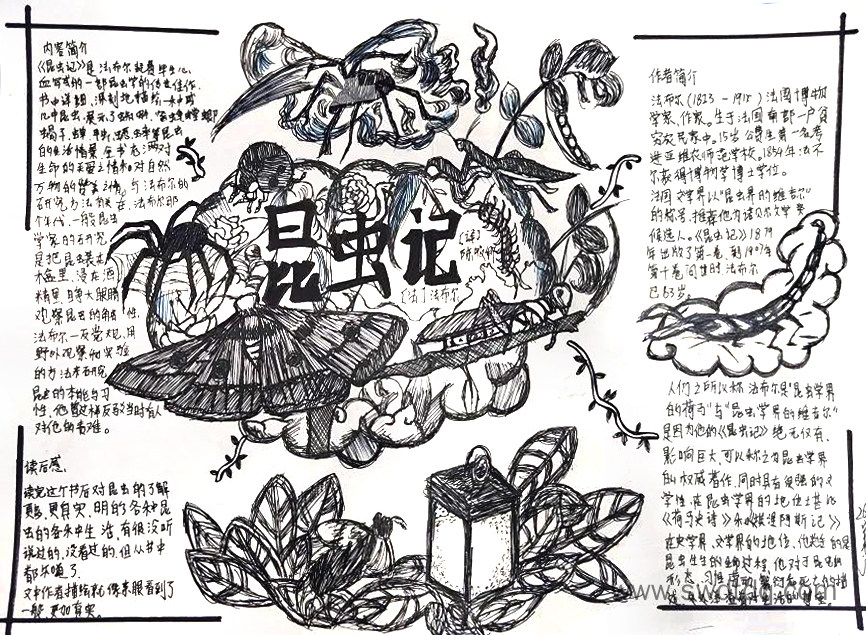 内容简介
《昆虫记》是法布尔耗费毕生心
血写成的一部昆虫学的传世佳作.
书中详细、深刻地描绘
几种昆虫,展示了
蝎子、蝉
的生活情景.全书充满对
生命的关爱之情和对自然
万物的赞美之情,与法布尔的
研究方法有关.在法布尔那
个年代,一般昆虫
学家的研究
是把昆虫装在
木盒里,浸在酒
精里,睁大眼睛
观察昆虫的触角
法布尔一反常规,用
野外观察和实验
的方法来研究
昆虫的本能与习
性,他曾这样反驳当时有人
对他的责难。
读后感.
读完这个书后对昆虫的了解
更真实、明的各种昆
虫的各种生活,有很没听
说过的,没看过的,但从书中
都知道了.
文中作者描绘就像亲眼看到了
一般,更加真实。
昆虫记
[法]法布尔
作者简介
法布尔(1823-1915)法国博物
学家、作家。生于法国南部一户贫
穷农民家中。15岁公费生第一名考
进亚维农师范学校。1854年法布
尔获得博物学博士学位。
法国文学界以"昆虫界的维吉尔"
的称号,推荐他为诺贝尔文学奖
候选人。《昆虫记》1879
年出版了第一卷,到1907年
第十卷问世时法布尔
已83岁。
人们之所以称法布尔是"昆虫学界
的荷马"与"昆虫学界的维吉尔"
是因为他的《昆虫记》绝无仅有,
影响巨大,可以称之为昆虫学界
的权威著作.同时具有很强的文
学性,在昆虫学界的地位堪比
《荷马史诗》和《埃涅阿斯记》
在史学界、文学界的地位,他关注的是
昆虫生生的生命过程,他对于昆虫的
形态、习性、劳动、繁衍和死亡的描